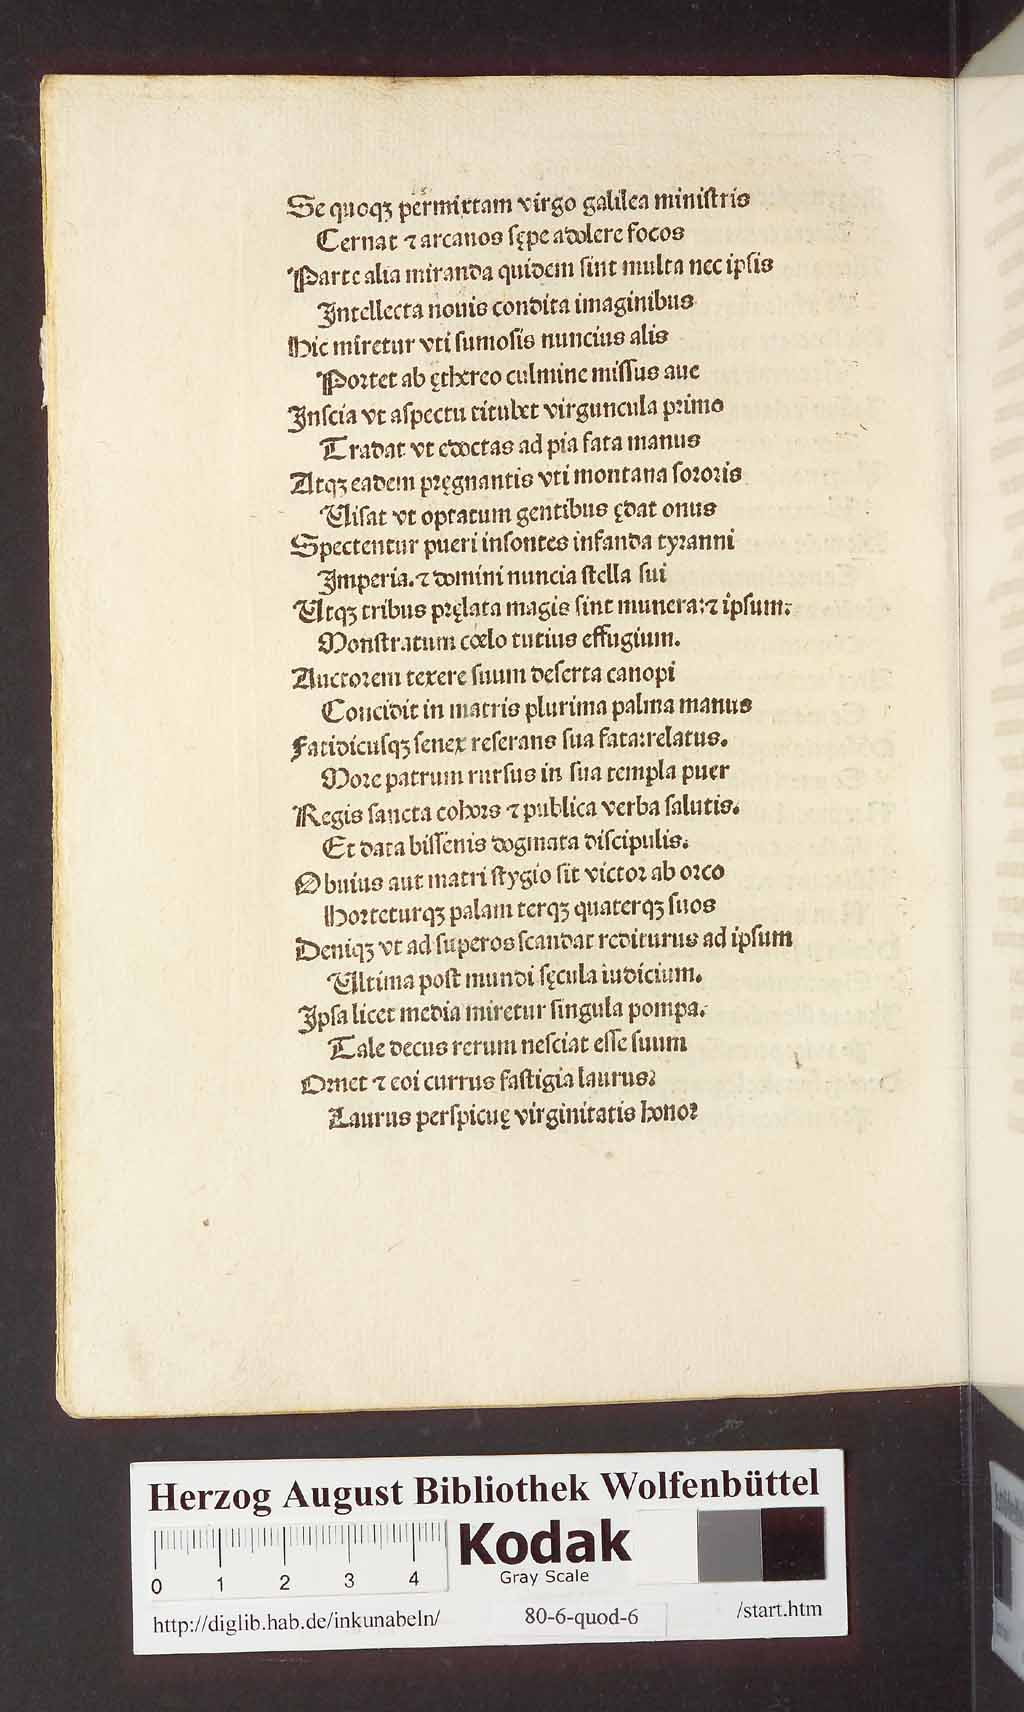 Se quoqꝫ permixtam virgo galilea ministris
Cernat ⁊ arcanos sępe adolere focos
Parte alia miranda quidem sint multa nec ipsis
Intellecta nouis condita imaginibus
Hic miretur vti fumosis nuncius alis
Portet ab ęthereo culmine missus aue
Inscia vt aspectu titubet virguncula primo
Tradat vt edoctas ad pia fata manus
Atqꝫ eadem pręgnantis vti montana sororis
Visat vt optatum gentibus ędat onus
Spectentur pueri insontes infanda tyranni
Imperia. ⁊ domini nuncia stella sui
Utqꝫ tribus pręlata magis sint munera: ⁊ ipsum:
Monstratum cœlo tutius effugium.
Auctorem texere suum deserta canopi
Concidit in matris plurima palma manus
Fatidicusqꝫ senex reserans sua fata: relatus.
More patrum rursus in sua templa puer
Regis sancta cohors ⁊ publica verba salutis.
Et data bissenis dogmata discipulis:
Obuius aut matri stygio sit victor ab orco
Horteturqꝫ palam terqꝫ quaterqꝫ suos
Deniqꝫ vt ad superos scandat rediturus ad ipsum
Ultima post mundi sęcula iudicium.
Ipsa licet media miretur singula pompa:
Tale decus rerum nesciat esse suum
Ornet ⁊ eoi currus fastigia laurus:
Laurus perspicuę virginitatis honor
Herzog August Bibliothek Wolfenbüttel
0 1 2 3 4
Kodak
Gray Scale
http://diglib.hab.de/inkunabeln/ 80-6-quod-6 /start.htm